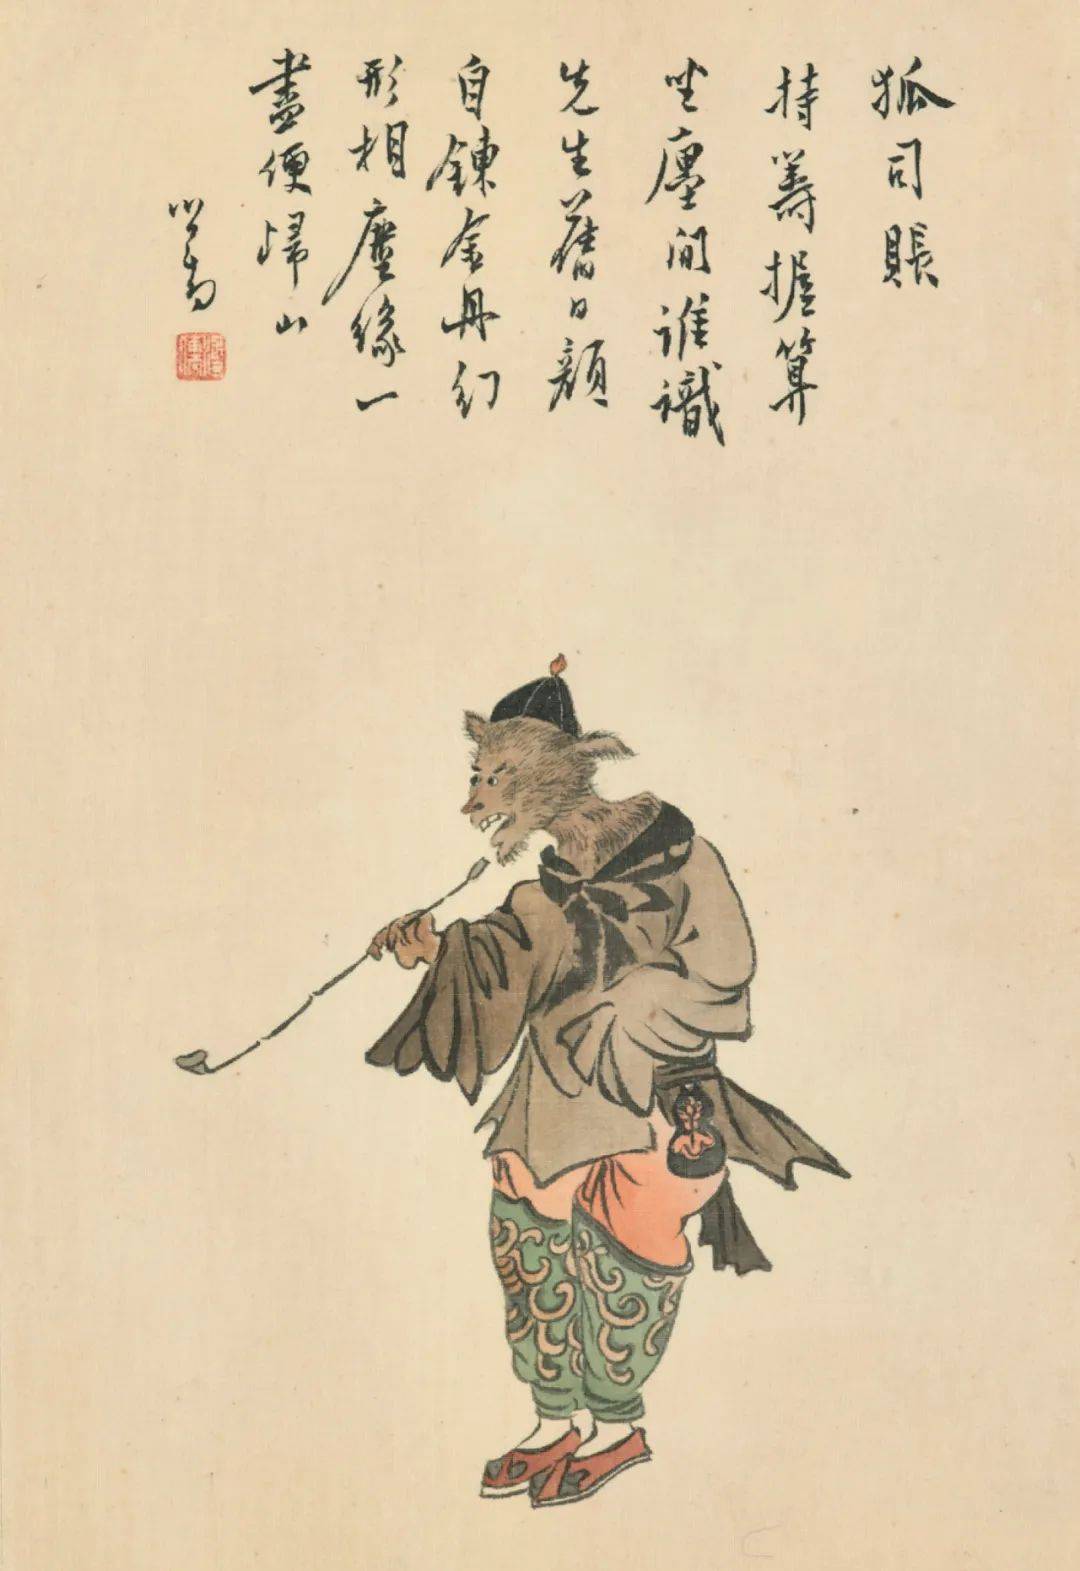 狐司賬
持籌握算
坐廛間誰識
先生舊日顏
自鍊金丹幻
形相塵緣一
盡便歸山
心畬